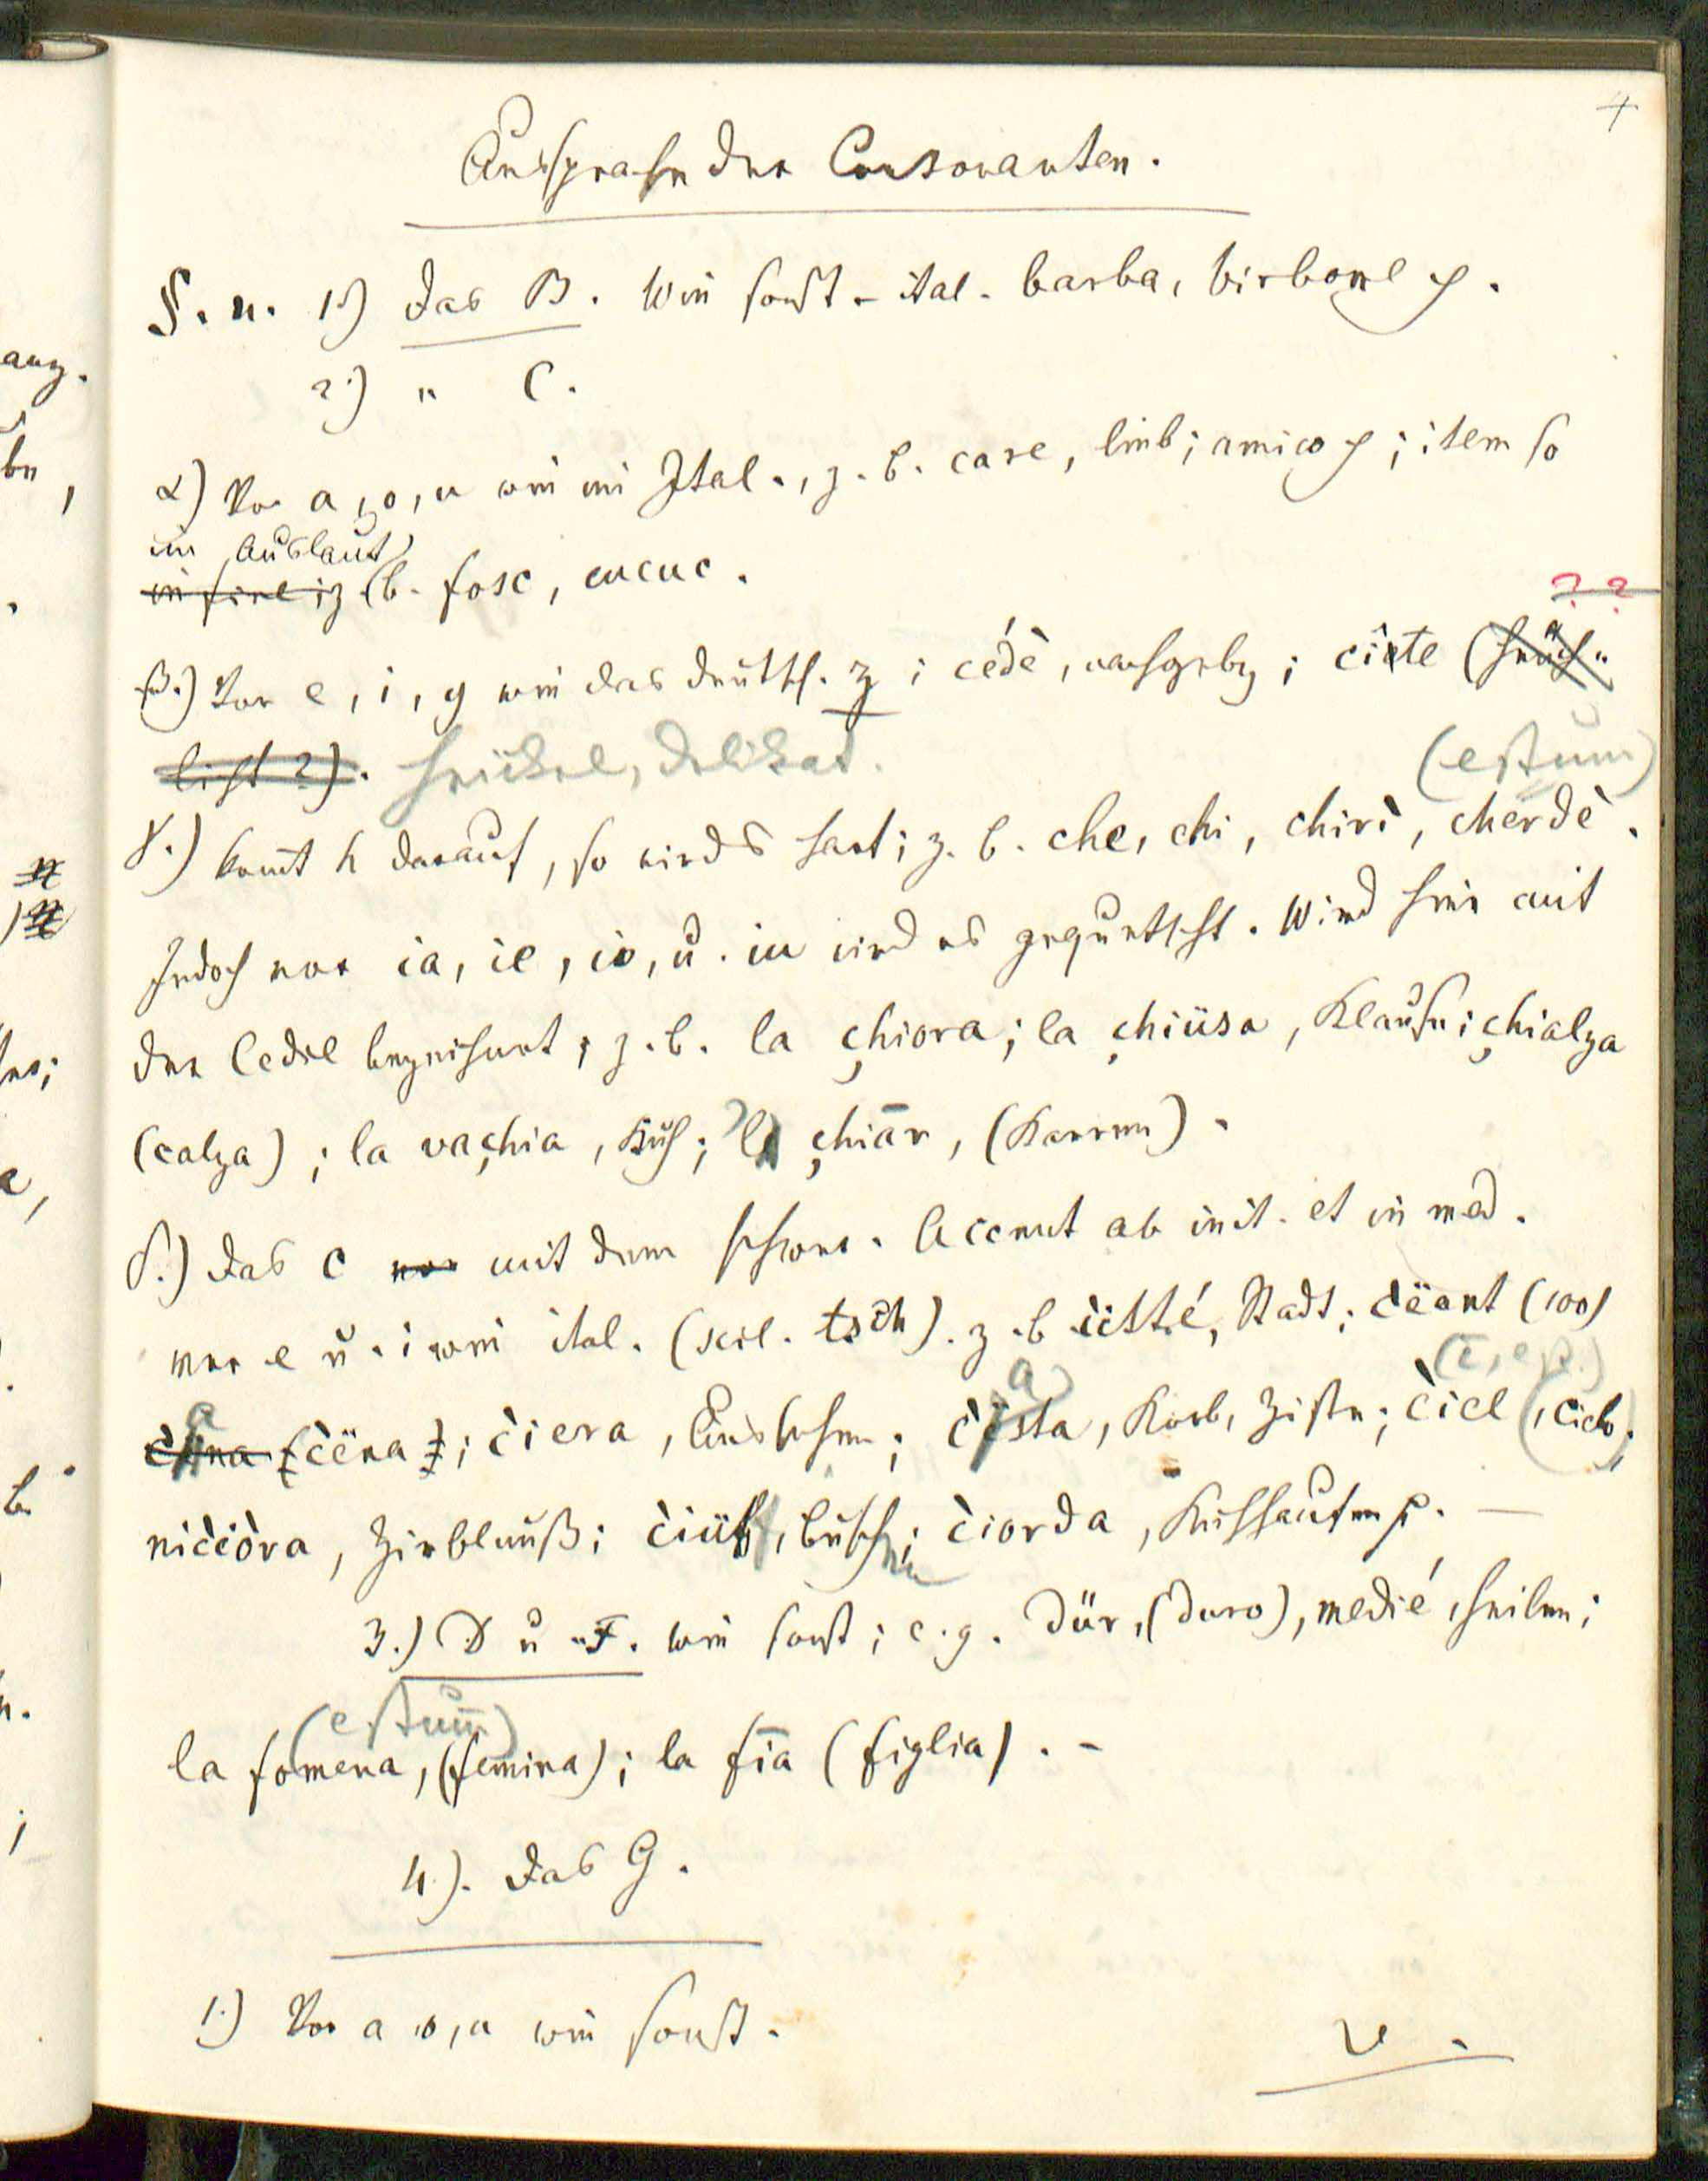 4
Aussprache der Consonanten.
§. n. 1.) Das B. Wie sonst - ital. barba, birbone p.
2.) " C.
α) Vor a, o, u wie im Ital., z. b. care, lieb; amico p; item so
im Auslaut
in fine; z. b. fosc, cucuc.
? ?
β.) Vor e, i, y wie das deutsch. z; cédè, nachgeb; ciste
licht?). heickel, delikat.
(estum)
γ.) komt h darauf, so wird's hart; z. b. che, chi, chirì, cherdè.
Jedoch vor ia, ie, io, u. iu wird es gequetscht. Wird hier mit
der Cedil bezeichnet, z. b. la çhiora; la çhiüsa, Klause; çhialza
(calza); la vaçhia, Kuh; l çhiãr, (Karren).
δ.) Das c vor mit dem schwer. Accent ab init. et in med.
vor e u. i wie ital. (scil. tsch). z. b c̀itté, Stadt; c̀ëant (100)
(c̀ëna); c̀iera, Aussehen; c̀ësta, Korb, Zistn; c̀iel (, cielo;
nic̀iòra, Zirblnuß; c̀iüf, busch; c̀iorda, Kuhhaufen p. —
3.) D u F. wie sonst; e. g. dür, (duro), medié, heilen;
(estum)
la fomena, (femina); la fīa (figlia). -
4.). Das G.
1.) Vor a, o, u wie sonst.